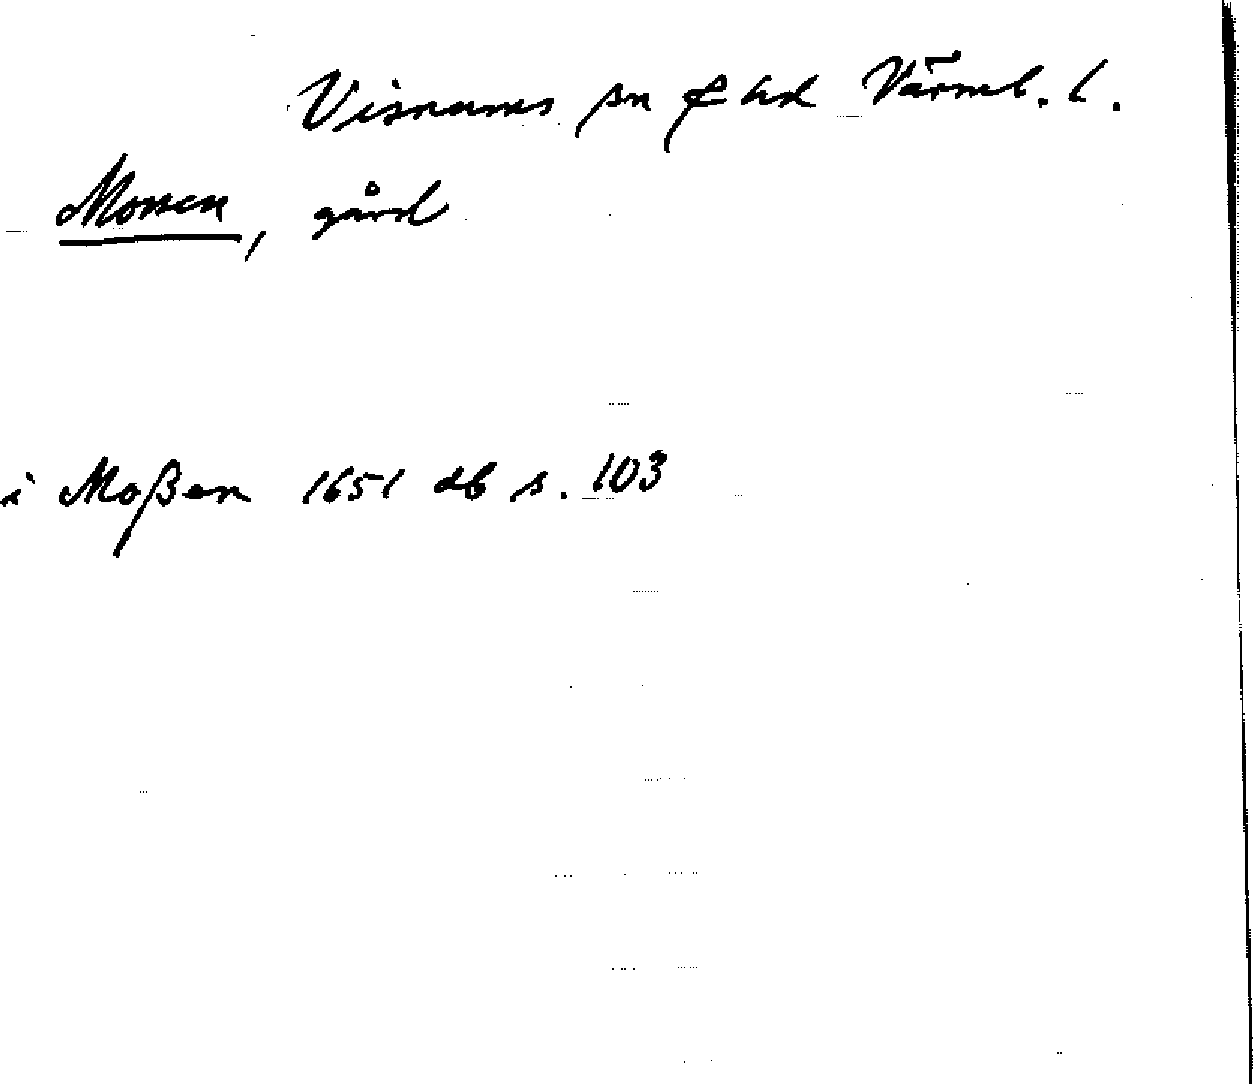 Visnums sn & hd Värml. l.
Mossen, gård
i Moßen 1651 db s. 103